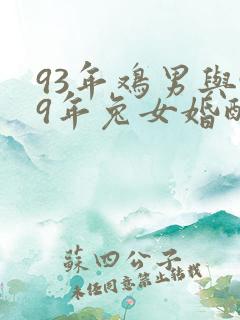 93年鸡男與
9年兔女婚配
蘇四公子
未经同意禁止转载